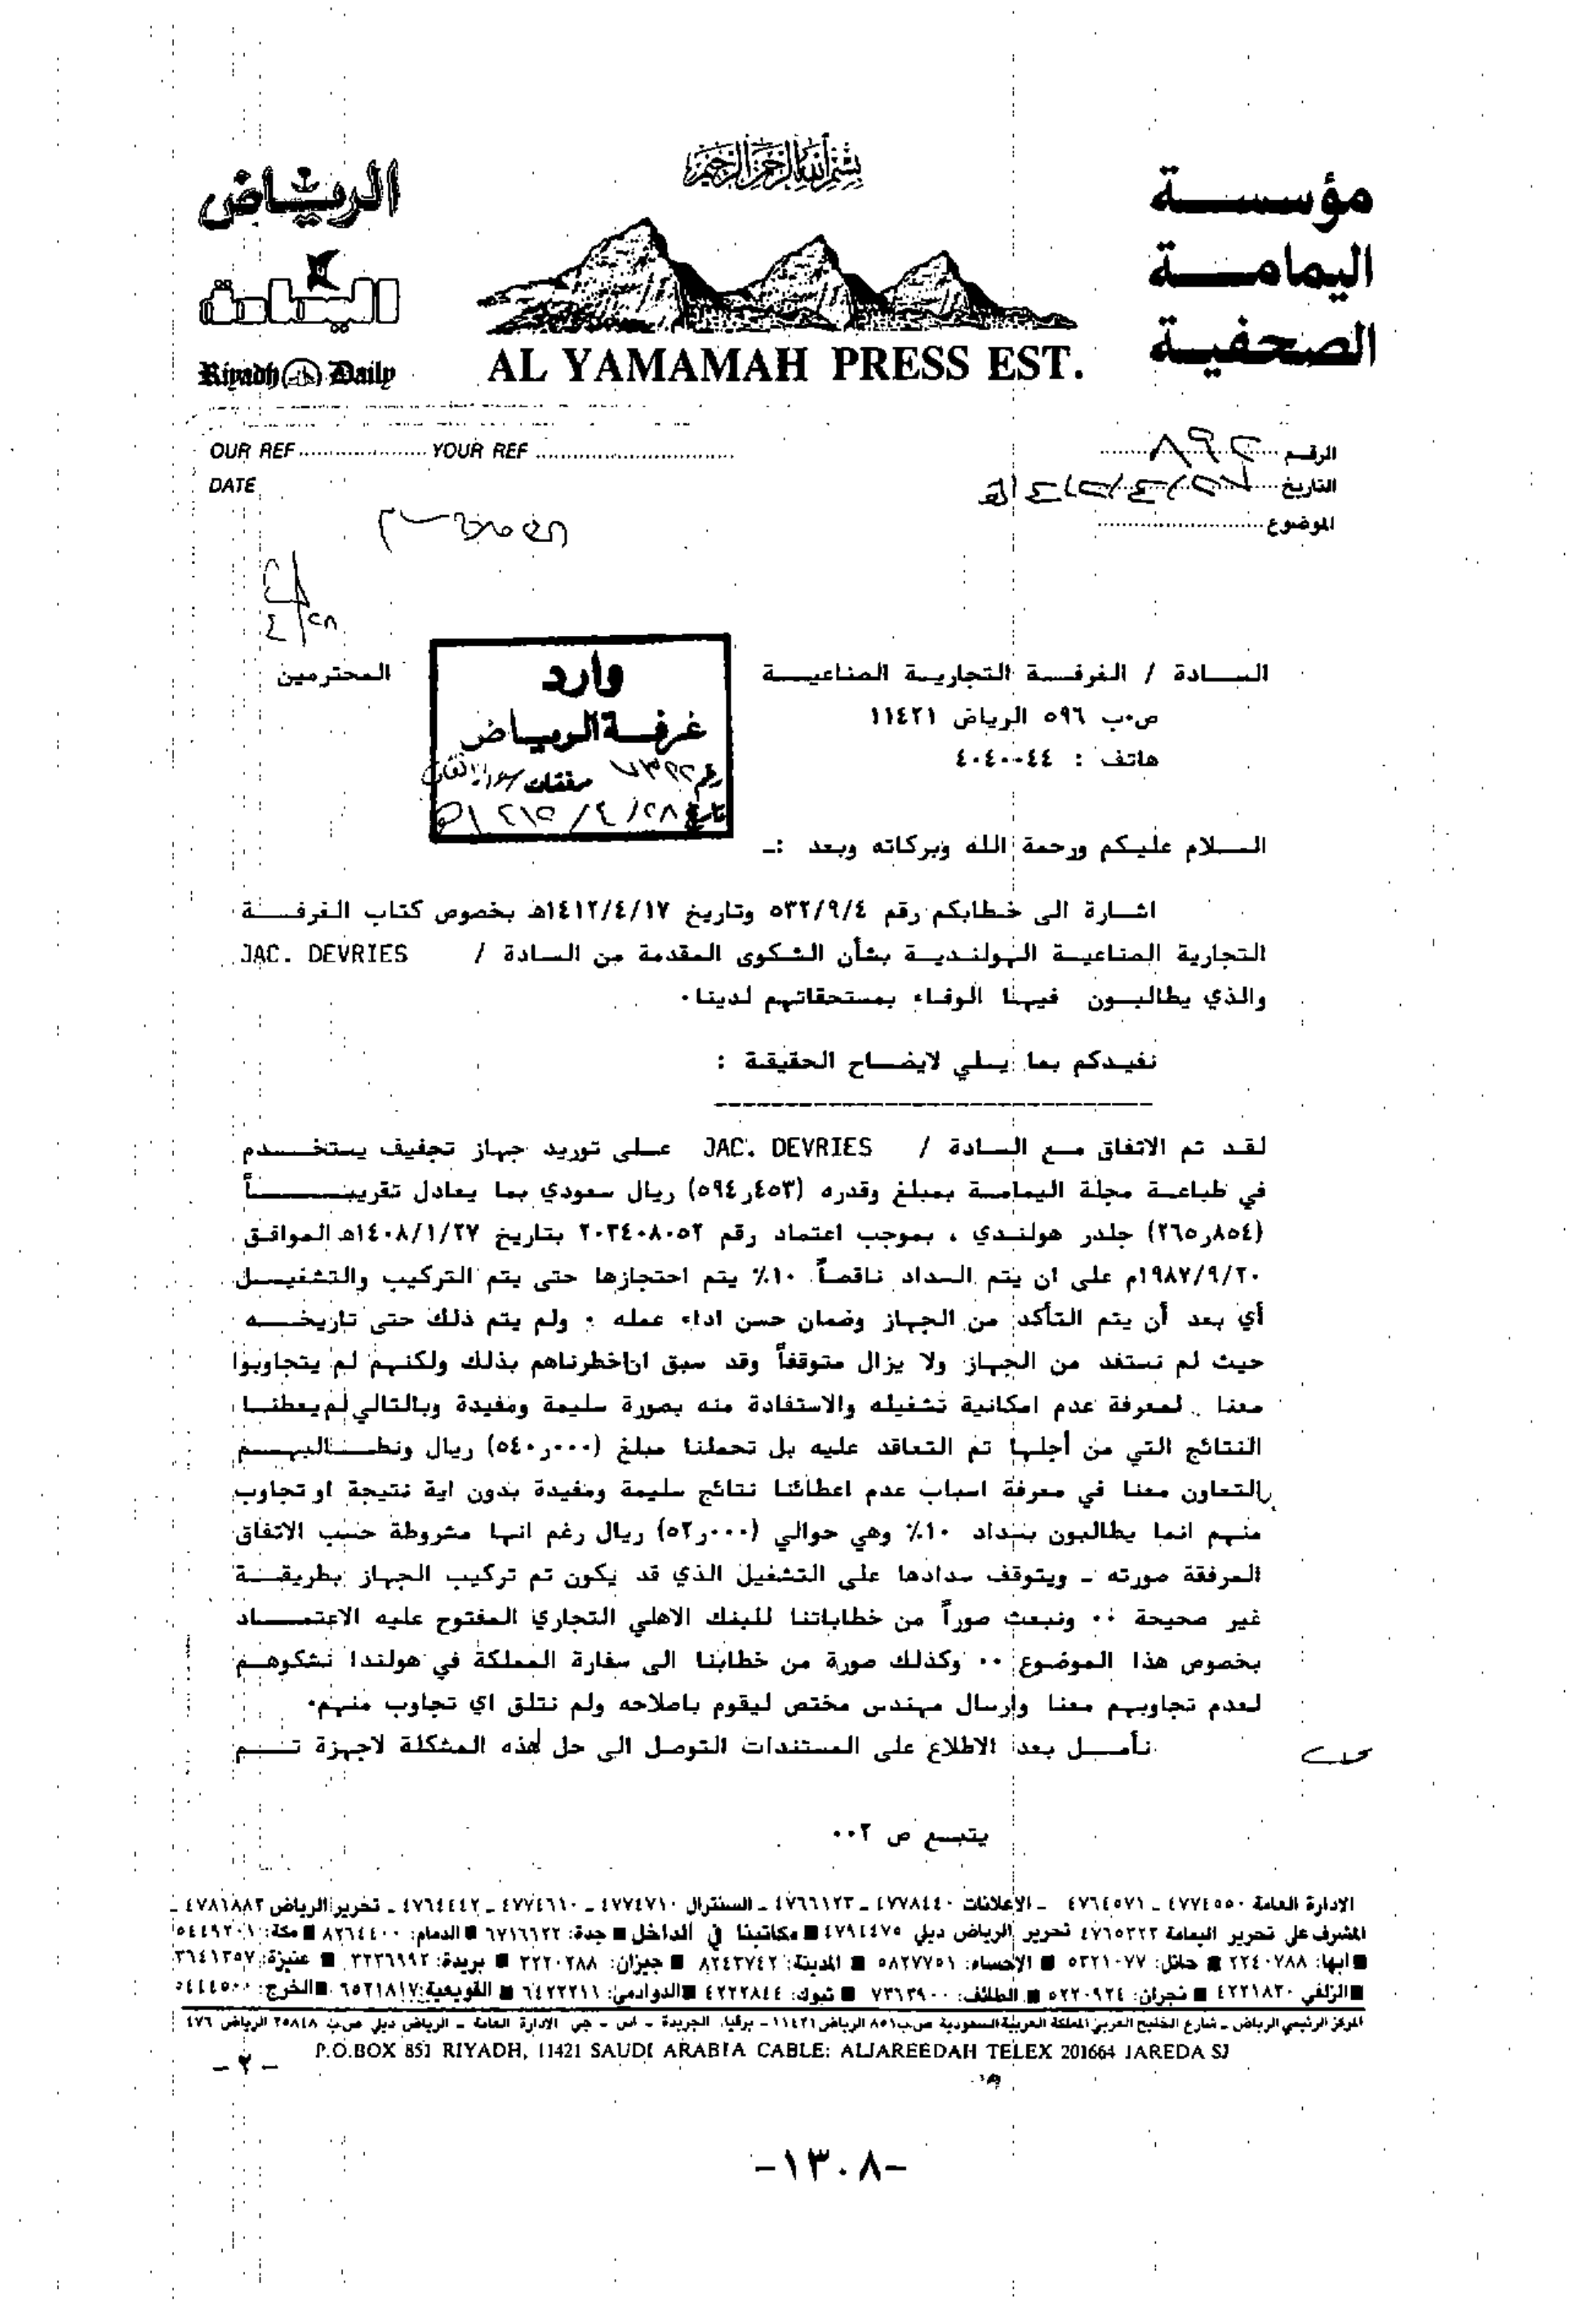 بسم الله الرحمن الرحيم
الرياض
اليمامة
Riyadh Daily
AL YAMAMAH PRESS EST.
مؤسسة
اليمامة
الصحفية
OUR REF ........ YOUR REF ........
DATE
الرقم
التاريخ
الموضوع
السادة / الغرفة التجارية الصناعية المحترمين
ص.ب ٥٩٦ الرياض ١١٤٢١
هاتف : ٤٠٤٠٠٤٤
وارد
غرفة الرياض
رقم مرفقات
تاريخ ٢٨/٤/
السلام عليكم ورحمة الله وبركاته وبعد :ـ
اشارة الى خطابكم رقم ٥٣٢/٩/٤ وتاريخ ١٤١٢/٤/١٧هـ بخصوص كتاب الغرفة
التجارية الصناعية الهولندية بشأن الشكوى المقدمة من السادة / JAC. DEVRIES
والذي يطالبون فيها الوفاء بمستحقاتهم لدينا.
نفيدكم بما يلي لايضاح الحقيقة :
لقد تم الاتفاق مع السادة / JAC. DEVRIES على توريد جهاز تجفيف يستخدم
في طباعة مجلة اليمامة بمبلغ وقدره (٥٩٤ر٤٥٣) ريال سعودي بما يعادل تقريباً
(٢٦٥ر٨٥٤) جلدر هولندي ، بموجب اعتماد رقم ٢٠٣٤٠٨٠٥٢ بتاريخ ١٤٠٨/١/٢٧هـ الموافق
١٩٨٧/٩/٢٠م على ان يتم السداد ناقصاً ١٠٪ يتم احتجازها حتى يتم التركيب والتشغيل
أي بعد أن يتم التأكد من الجهاز وضمان حسن اداء عمله . ولم يتم ذلك حتى تاريخه
حيث لم نستفد من الجهاز ولا يزال متوقفاً وقد سبق ان اخطرناهم بذلك ولكنهم لم يتجاوبوا
معنا . لمعرفة عدم امكانية تشغيله والاستفادة منه بصورة سليمة ومفيدة وبالتالي لم يعطنا
النتائج التي من أجلها تم التعاقد عليه بل تحملنا مبلغ (٥٤٠ر٠٠٠) ريال ونطالبهم
بالتعاون معنا في معرفة اسباب عدم اعطائنا نتائج سليمة ومفيدة بدون اية نتيجة او تجاوب
منهم انما يطالبون بسداد ١٠٪ وهي حوالي (٥٢ر٠٠٠) ريال رغم انها مشروطة حسب الاتفاق
المرفقة صورته ـ ويتوقف سدادها على التشغيل الذي قد يكون تم تركيب الجهاز بطريقة
غير صحيحة .. ونبعث صوراً من خطاباتنا للبنك الاهلي التجاري المفتوح عليه الاعتماد
بخصوص هذا الموضوع .. وكذلك صورة من خطابنا الى سفارة المملكة في هولندا نشكوهم
لعدم تجاوبهم معنا وارسال مهندس مختص ليقوم باصلاحه ولم نتلق اي تجاوب منهم.
نأمل بعد الاطلاع على المستندات التوصل الى حل هذه المشكلة لاجهزة تم
يتبع ص ٢..
الادارة العامة ٤٧٧٤٥٥٠ ـ ٤٧٦٤٥٧١ ـ الإعلانات ٤٧٧٨٤٤٠ ـ ٤٧٦٦١٢٣ ـ السنترال ٤٧٧٤٧١٠ ـ ٤٧٧٤٦١٠ ـ ٤٧٦٤٤٤٢ ـ تحرير الرياض ٤٧٨١٨٨٢ ـ
المشرف على تحرير اليمامة ٤٧٦٥٣٢٣ تحرير الرياض ديلي ٤٧٩١٤٧٥ ■ مكاتبنا في الداخل ■ جدة: ٦٧١٦٦٢٢ ■ الدمام: ٨٢٦٤٤٠٠ ■ مكة: ٥٤٤٩٢٠١
■ ابها: ٢٢٤٠٧٨٨ ■ حائل: ٥٣٢١٠٧٧ ■ الأحساء: ٥٨٢٧٧٥١ ■ المدينة: ٨٢٤٢٧٤٢ ■ جيزان: ٢٢٢٠٢٨٨ ■ بريدة: ٣٢٣٦٩٩٢ ■ عنيزة: ٣٦٤١٣٥٧
■ الزلفي ٤٢٢١٨٢٠ ■ نجران: ٥٢٢٠٩٢٤ ■ الطائف: ٧٣٦٣٩٠٠ ■ تبوك: ٤٢٢٢٨٤٤ ■ الدوادمي: ٦٤٢٢٢١١ ■ القويعية: ٦٥٢١٨١٧ ■ الخرج: ٥٤٤٤٥٠٠
المركز الرئيسي الرياض ـ شارع الخليج العربي المملكة العربية السعودية ص.ب ٨٥١ الرياض ١١٤٢١ ـ برقيا، الجريدة ـ اس ـ جي الادارة العامة ـ الرياض ديلي ص.ب ٢٥٨٤٨ الرياض ٤٧٦
P.O.BOX 851 RIYADH, 11421 SAUDI ARABIA CABLE: ALJAREEDAH TELEX 201664 JAREDA SJ
ـ ٢ ـ
-١٣٠٨-